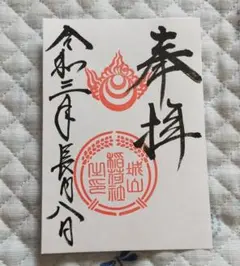 奉拝
城山
稲荷社
之印
令和三年長月八日